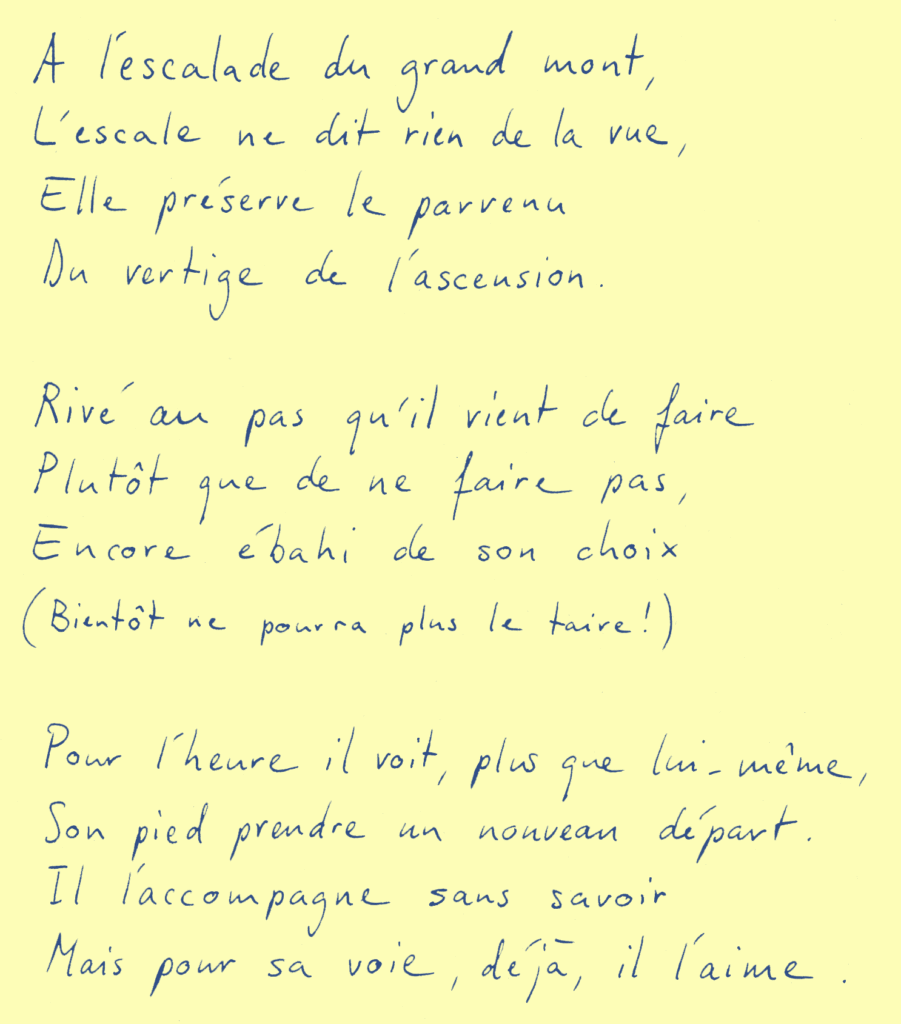 A l'escalade du grand mont,
L'escale ne dit rien de la vue,
Elle préserve le parvenu
Du vertige de l'ascension.
Rivé au pas qu'il vient de faire
Plutôt que de ne faire pas,
Encore ébahi de son choix
(Bientôt ne pourra plus le taire!)
Pour l'heure il voit, plus que lui-même,
Son pied prendre un nouveau départ.
Il l'accompagne sans savoir
Mais pour sa voie, déjà, il l'aime.